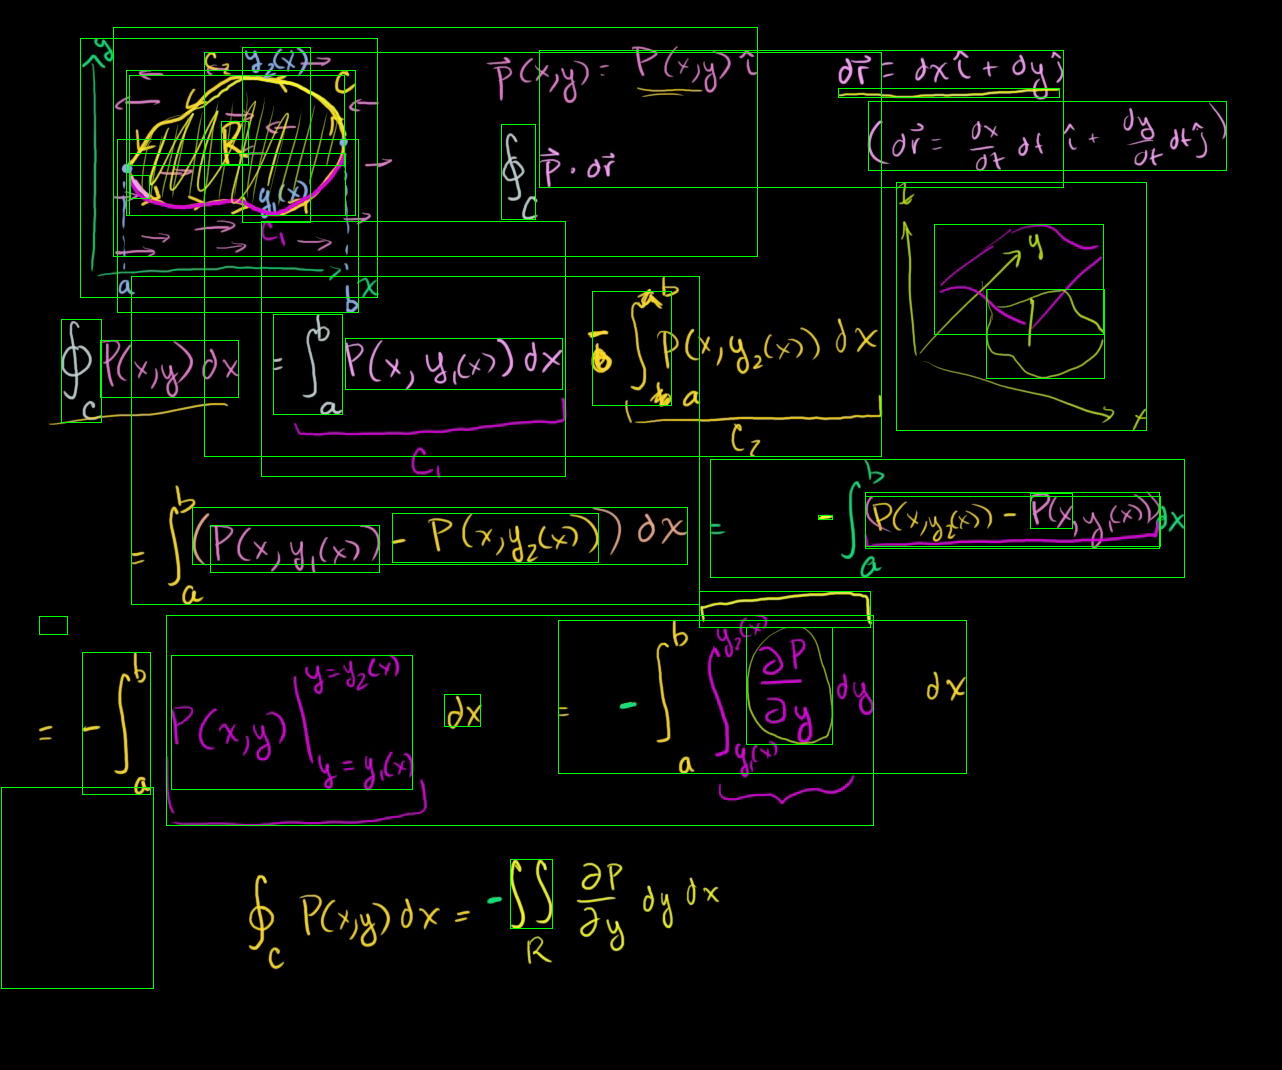 y C₂ y₂(x) C
R
y₁(x)
C₁
a b x
P⃗(x,y) = P(x,y) î
dr⃗ = dx î + dy ĵ
(dr⃗ = dx/dt dt î + dy/dt dt ĵ)
∮_C P⃗ · dr⃗
y
x
∮_C P(x,y) dx = ∫_a^b P(x, y₁(x)) dx - ∫_a^b P(x, y₂(x)) dx
C₁ C₂
= ∫_a^b (P(x, y₁(x)) - P(x, y₂(x))) dx = - ∫_a^b (P(x, y₂(x)) - P(x, y₁(x))) dx
= - ∫_a^b P(x,y) |_{y = y₁(x)}^{y = y₂(x)} dx = - ∫_a^b ∫_{y₁(x)}^{y₂(x)} ∂P/∂y dy dx
∮_C P(x,y) dx = - ∬_R ∂P/∂y dy dx